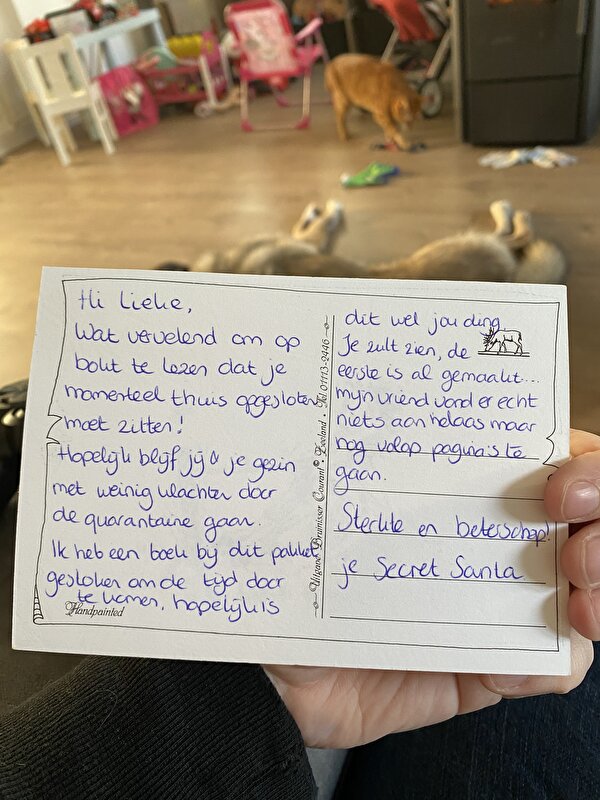 Hi Lieke,
Wat vervelend om op
bolt te lezen dat je
momenteel thuis opgesloten
moet zitten!
Hopelijk blijf jij & je gezin
met weinig klachten door
de quarantaine gaan.
Ik heb een boek bij dit pakket
gestoken om de tijd door
te komen, hopelijk is
Handpainted
Uitgave Bruinisser Courant © Zeeland • Tel. 01113-2446
dit wel jou ding.
Je zult zien, de
eerste is al gemaakt...
mijn vriend vond er echt
niets aan helaas maar
nog volop pagina's te
gaan.
Sterkte en beterschap!
je Secret Santa